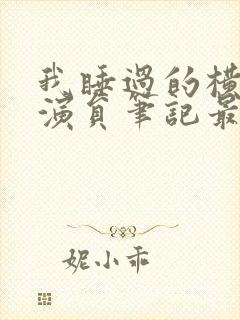 我睡過的橫
演員筆記最
妮小乖